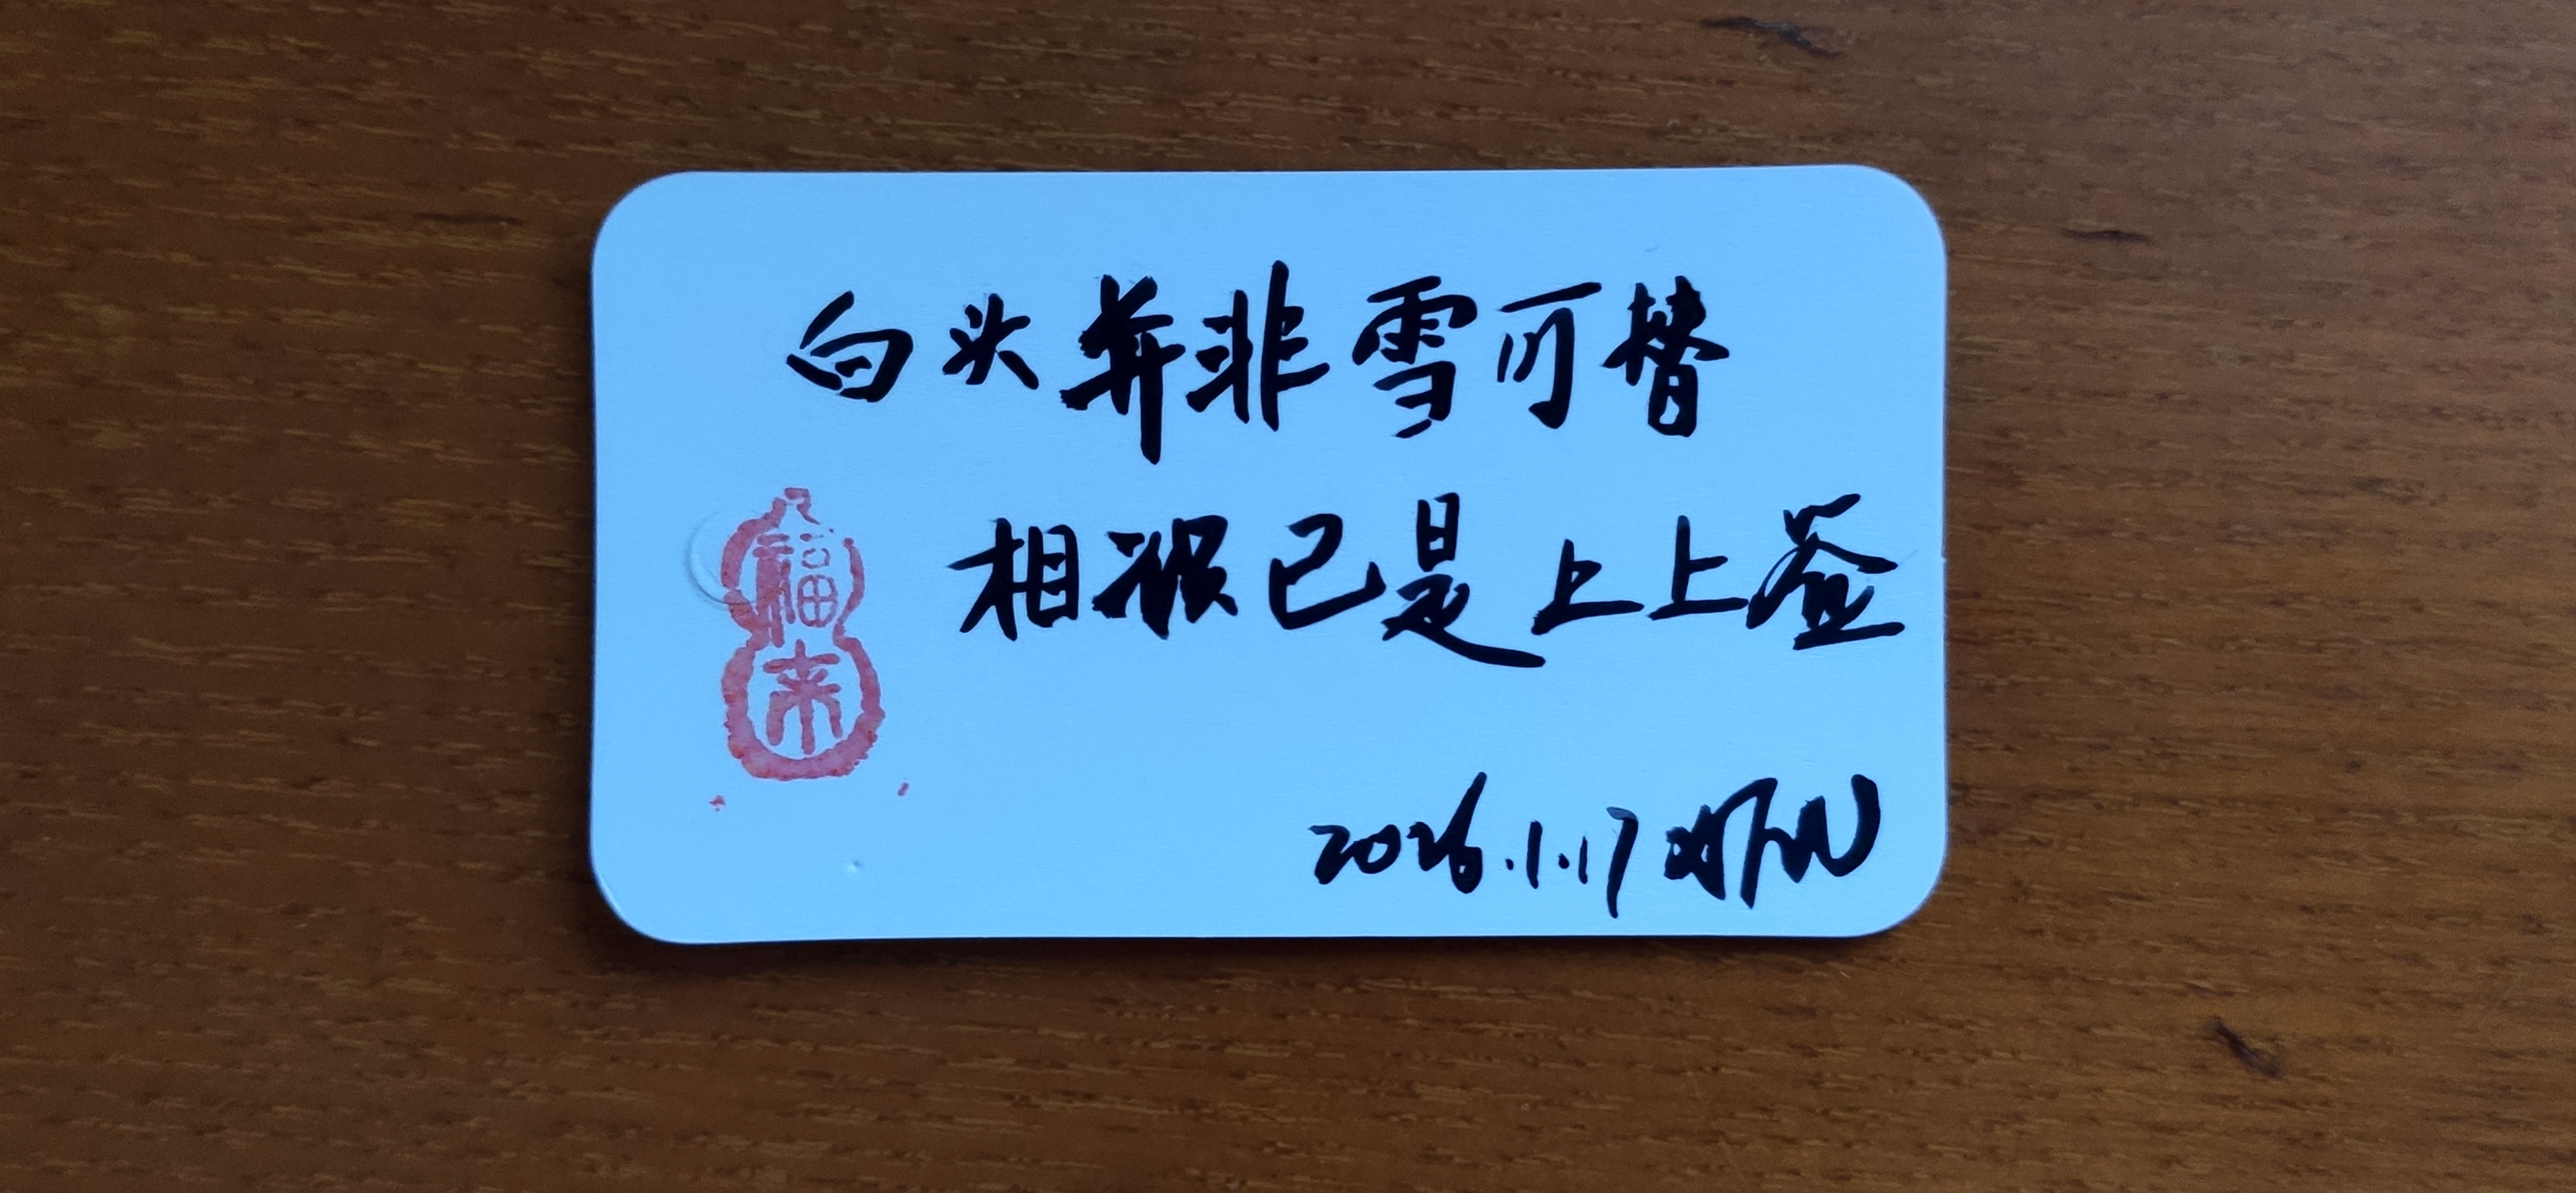 白头并非雪可替
相识已是上上签
福来
2026.1.17